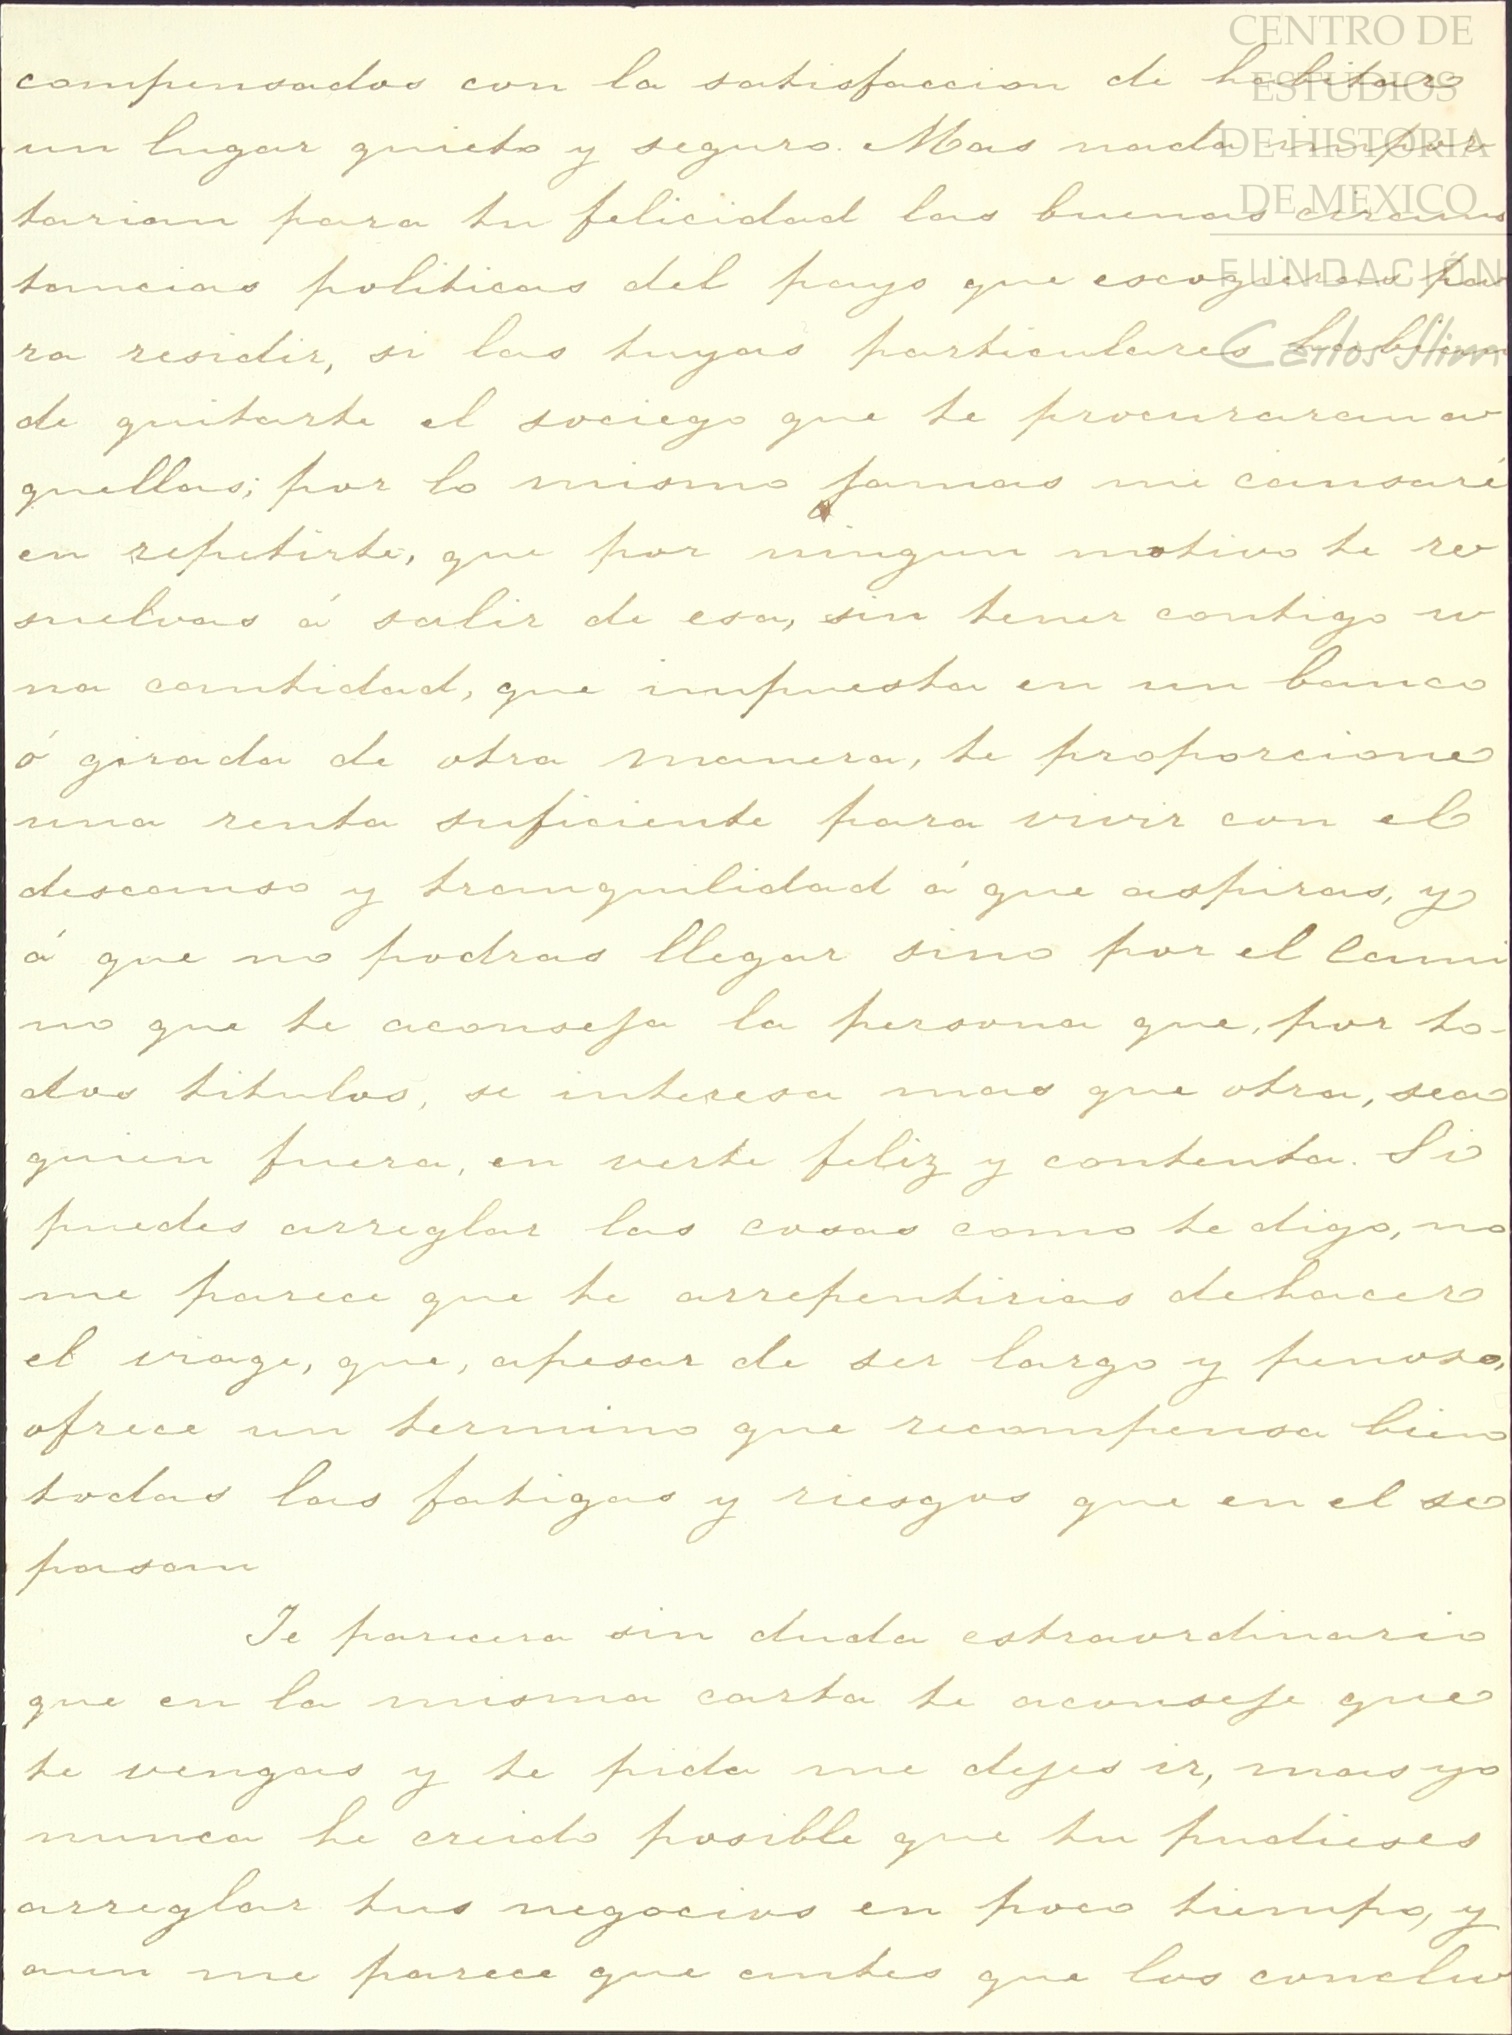 CENTRO DE
ESTUDIOS
DE HISTORIA
DE MEXICO
FUNDACIÓN
Carlos Slim
compensados con la satisfaccion de habitar
un lugar quieto y seguro. Mas nada impor
tarian para tu felicidad las buenas circuns
tancias politicas del pays que escogieras pa
ra residir, si las tuyas particulares habian
de quitarte el sociego que te procuraran a
quellas; por lo mismo jamas me cansaré
en repetirte, que por ningun motivo te re
suelvas á salir de esa, sin tener contigo u
na cantidad, que impuesta en un banco
ó girada de otra manera, te proporcione
una renta suficiente para vivir con el
descanso y tranquilidad á que aspiras, y
á que no podras llegar sino por el cami
no que te aconseja la persona que, por to-
dos titulos, se interesa mas que otra, sea
quien fuera, en verte feliz y contenta. Si
puedes arreglar las cosas como te digo, no
me parece que te arrepentirias de hacer
el viage, que, apesar de ser largo y penoso,
ofrece un termino que recompensa bien
todas las fatigas y riesgos que en el se
pasan
Te parecera sin duda estraordinario
que en la misma carta te aconseje que
te vengas y te pida me dejes ir, mas yo
nunca he creido posible que tu pudieses
arreglar tus negocios en poco tiempo, y
aun me parece que antes que los conclu